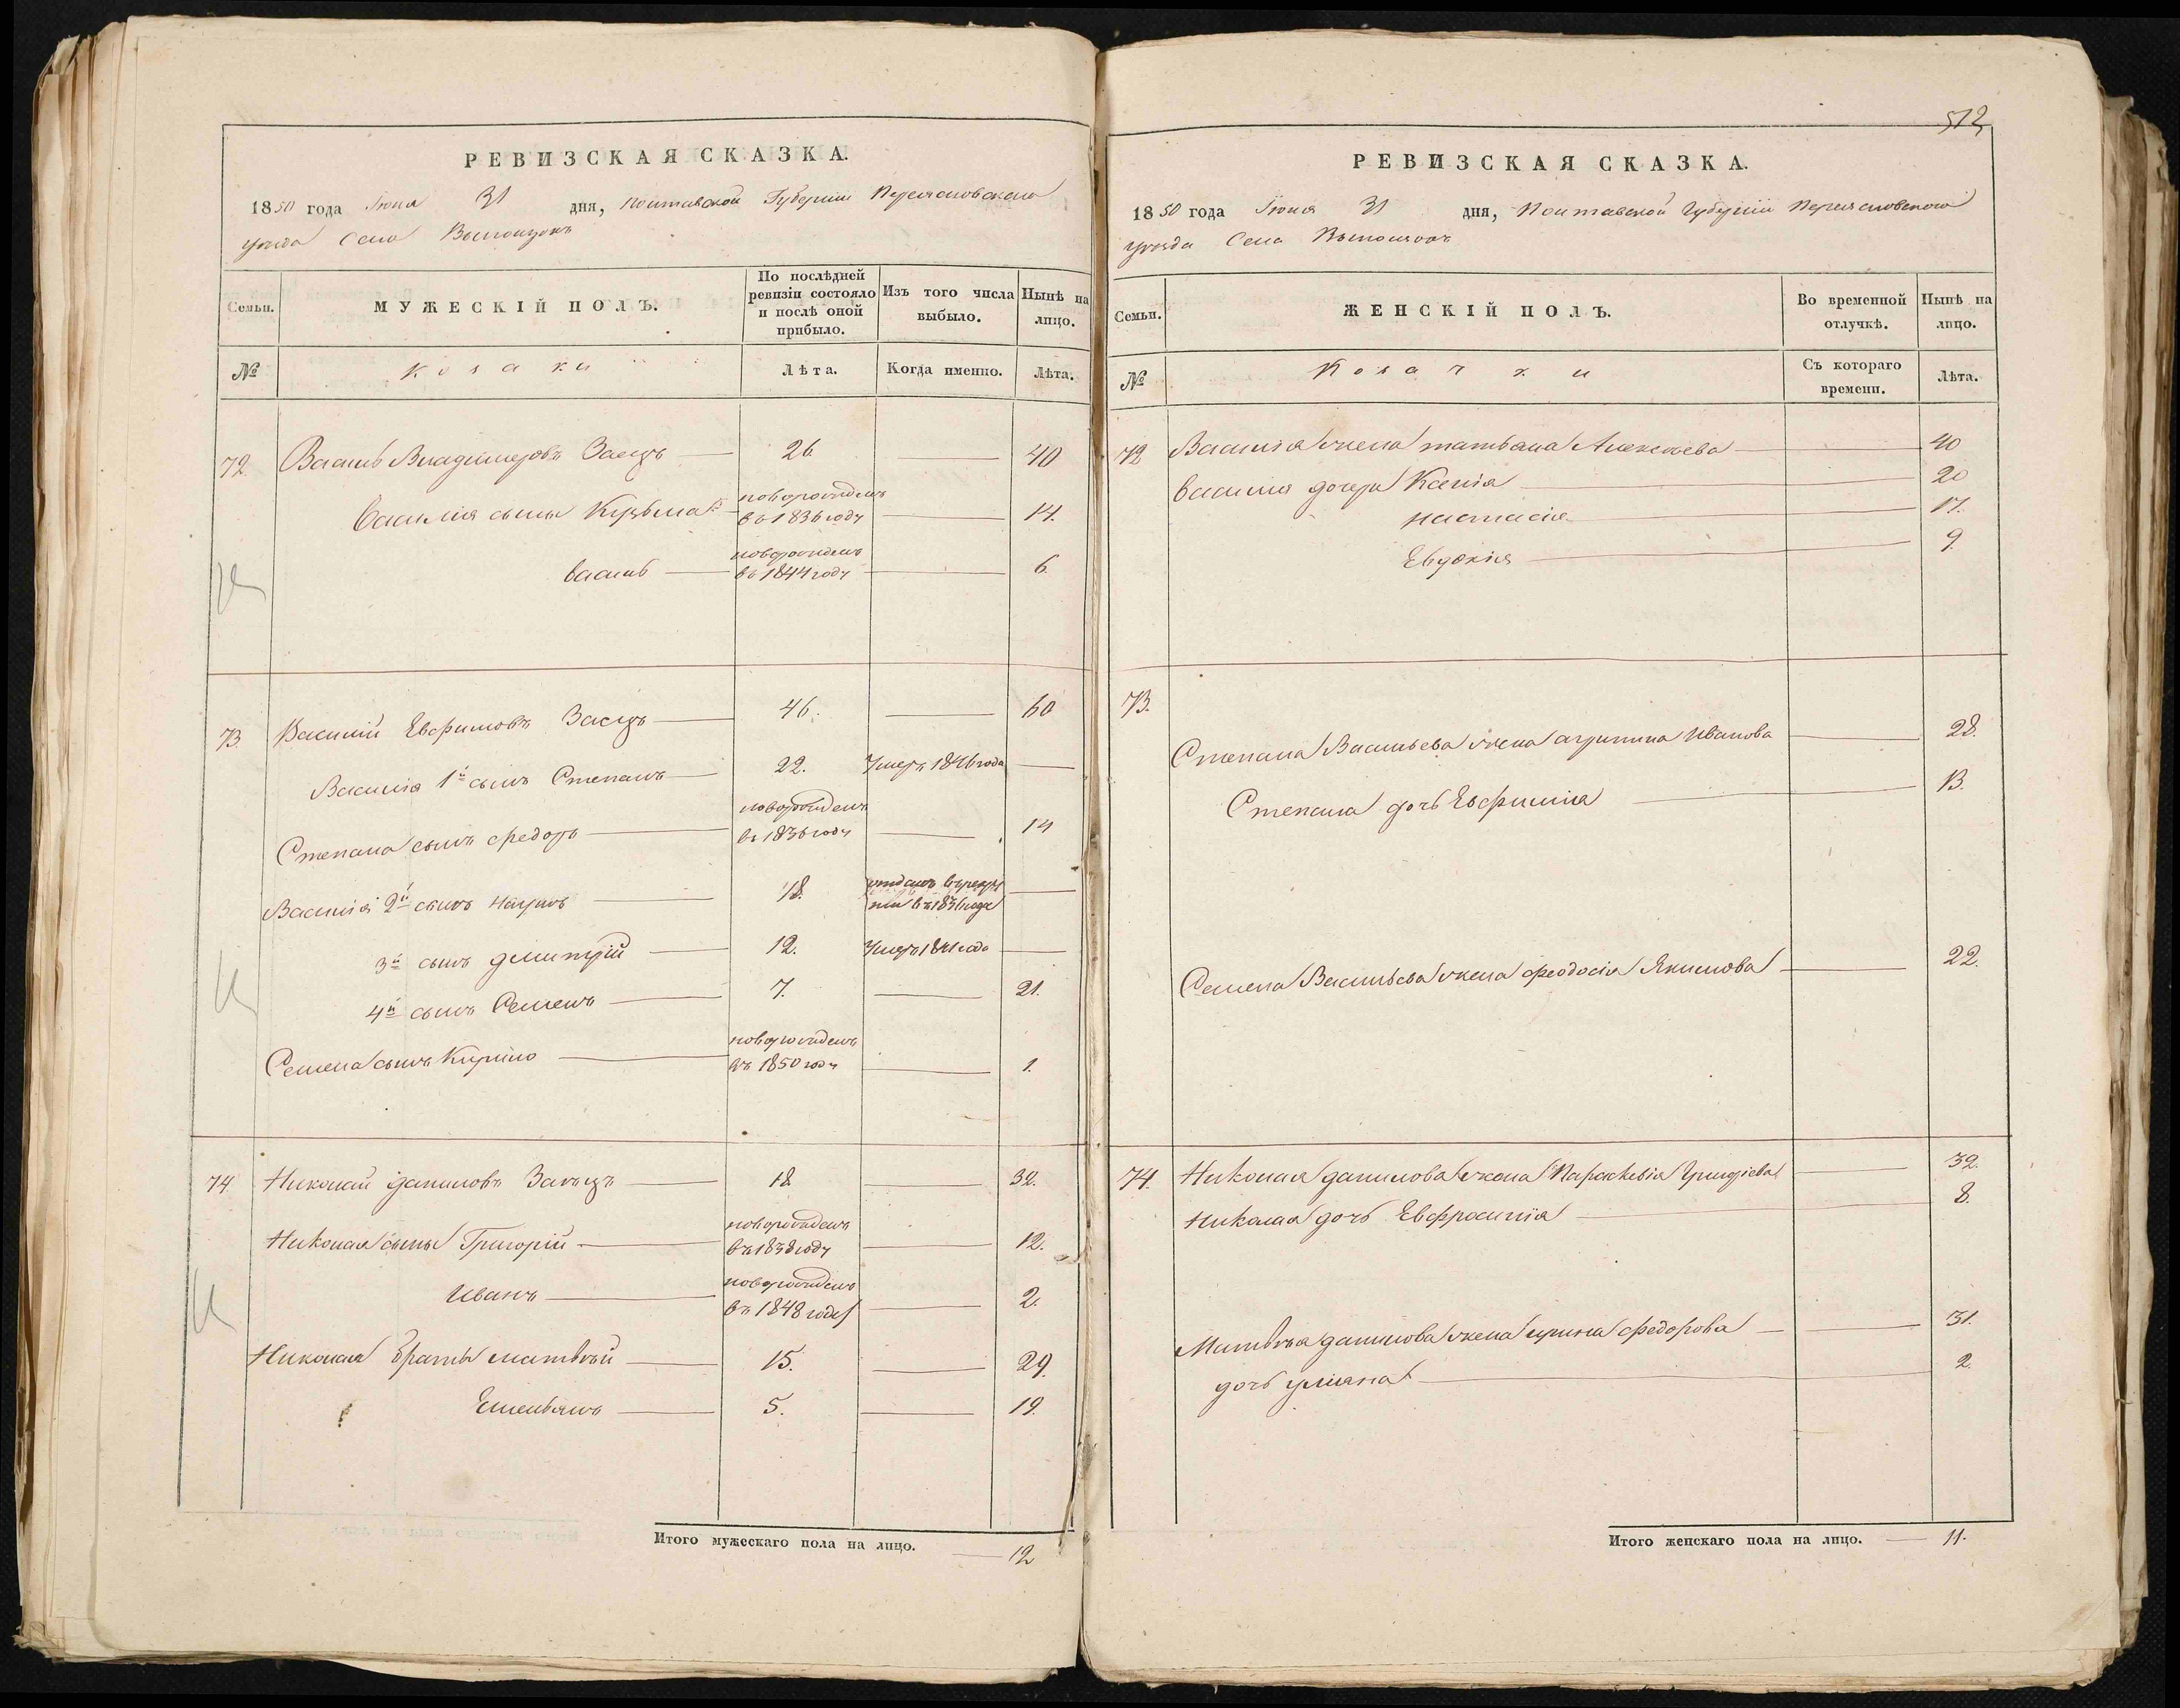 РЕВИЗСКАЯ СКАЗКА.
1850 года Июня 31 дня, Полтавской Губернии Переясловского
уезда Села
Семьи.
МУЖЕСКІЙ ПОЛЪ.
По послѣдней ревизіи состояло и послѣ оной прибыло.
Изъ того числа выбыло.
Нынѣ на лицо.
№
Козаки
Лѣта.
Когда именно.
Лѣта.
72. Василь Владимеровъ Заецъ 26 40
Василія сыны Кузьма новорожденъ въ 1836 году 14.
василь новорожденъ въ 1844 году 6.
73. Василій Евфимовъ Заецъ 46. 60
Василія 1й сынъ Степанъ 22. Умеръ 1846 года
Степана сынъ федоръ новорожденъ въ 1836 году 14
Василія 2й сынъ наумъ 18. отданъ въ рекруты въ 1836 годе
3й сынъ дмитрій 12. Умеръ 1841 года
4й сынъ Семенъ 7. 21.
Семена сынъ Кирило новорожденъ въ 1850 году 1.
74 Николай даниловъ Заецъ 18 32.
Николая сыны Григорій новорожденъ въ 1838 году 12.
Иванъ новорожденъ въ 1848 году 2.
Николая братья матвѣй 15. 29.
Емельянъ 5. 19.
Итого мужескаго пола на лицо. 12
512
РЕВИЗСКАЯ СКАЗКА.
1850 года Июня 31 дня, Полтавской Губерніи Переясловского
уезда Села
Семьи.
ЖЕНСКІЙ ПОЛЪ.
Во временной отлучкѣ.
Нынѣ на лицо.
№
Козачки
Съ котораго времени.
Лѣта.
72 Василія жена татьяна Алексѣева 40
василия дочери Ксенія 20
настасія 17.
Евдокія 9.
73.
Степана Васильева жена агрипина Иванова 28.
Степана дочь Евфимія 13.
Семена Васильева жена феодосія Якимова 22.
74. Николая данилова жена Параскевія 32.
Николая дочь Евфросинія 8.
Матвѣя данилова жена ирина федорова 31.
дочь уліяна 2.
Итого женскаго пола на лицо. 11.